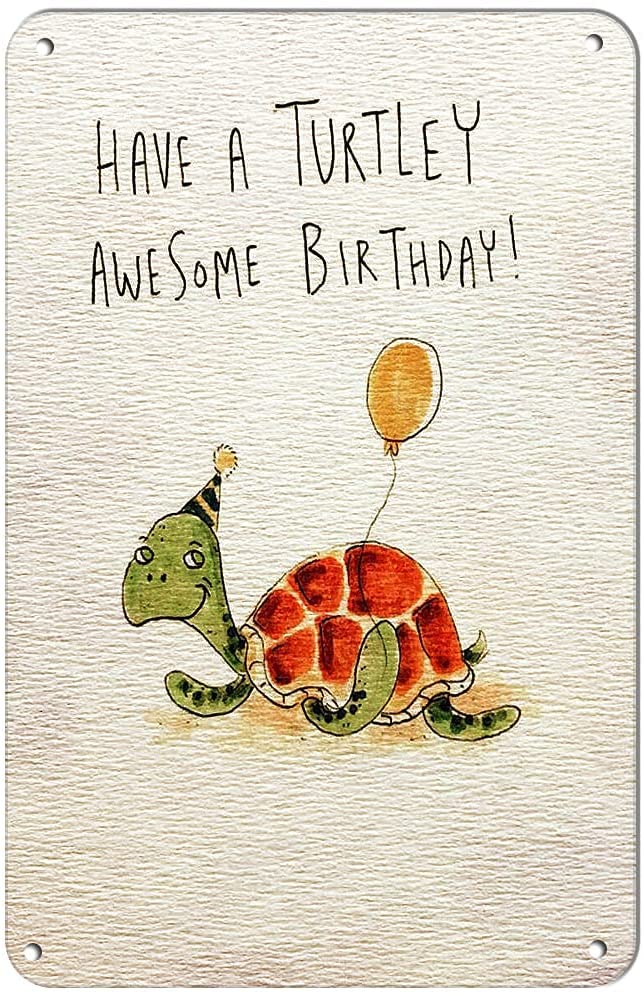 HAVE A TURTLEY
AWESOME BIRTHDAY!